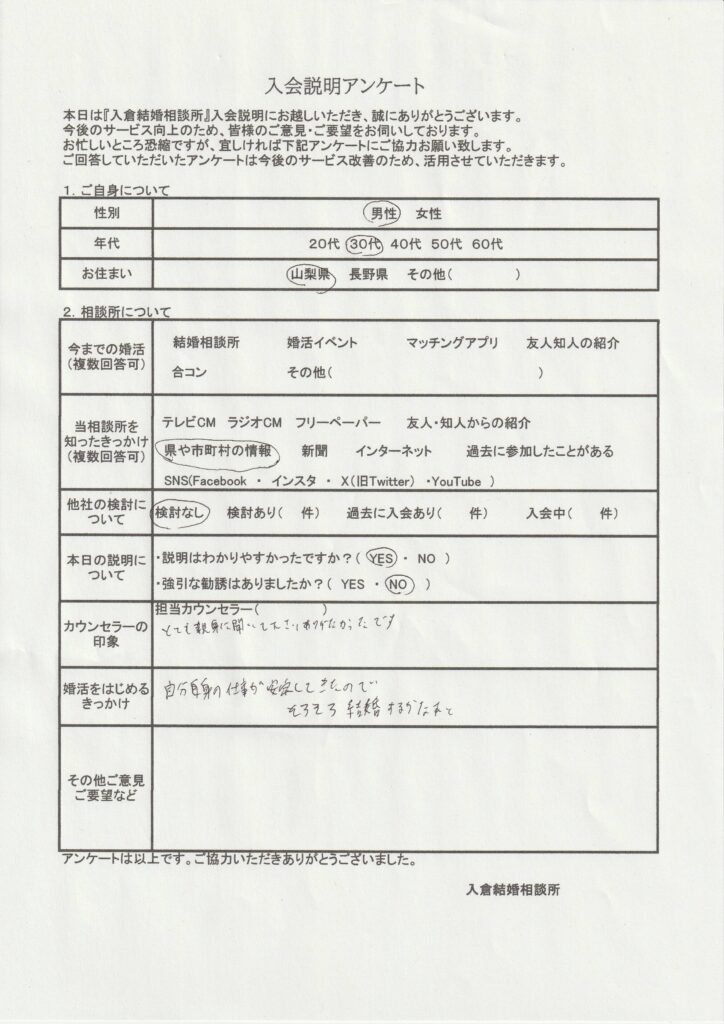 入会説明アンケート
本日は『入倉結婚相談所』入会説明にお越しいただき、誠にありがとうございます。
今後のサービス向上のため、皆様のご意見・ご要望をお伺いしております。
お忙しいところ恐縮ですが、宜しければ下記アンケートにご協力お願い致します。
ご回答していただいたアンケートは今後のサービス改善のため、活用させていただきます。
1．ご自身について
性別 男性 女性
年代 20代 30代 40代 50代 60代
お住まい 山梨県 長野県 その他( )
2．相談所について
今までの婚活
(複数回答可)
結婚相談所 婚活イベント マッチングアプリ 友人知人の紹介
合コン その他( )
当相談所を
知ったきっかけ
(複数回答可)
テレビCM ラジオCM フリーペーパー 友人・知人からの紹介
県や市町村の情報 新聞 インターネット 過去に参加したことがある
SNS(Facebook ・ インスタ ・ X(旧Twitter) ・YouTube )
他社の検討に
ついて
検討なし 検討あり( 件) 過去に入会あり( 件) 入会中( 件)
本日の説明に
ついて
・説明はわかりやすかったですか？( YES ・ NO )
・強引な勧誘はありましたか？( YES ・ NO )
カウンセラーの
印象
担当カウンセラー( )
とても親身に聞いて下さりありがたかったです
婚活をはじめる
きっかけ
自分自身の仕事が安定してきたので
そろそろ結婚するかなぁと
その他ご意見
ご要望など
アンケートは以上です。ご協力いただきありがとうございました。
入倉結婚相談所